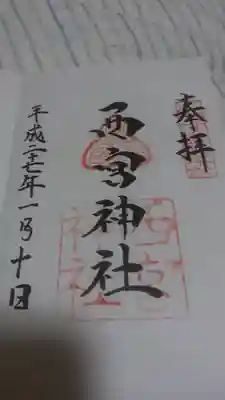 奉拝
西宮神社
平成二十七年一月十日